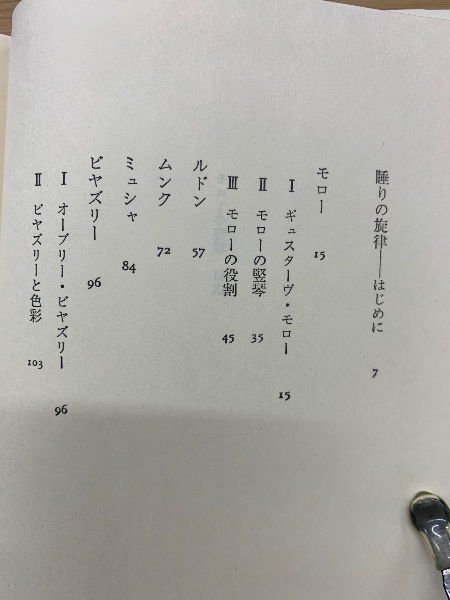 睡りの旋律——はじめに 7
モロー 15
I ギュスターヴ・モロー 15
II モローの竪琴 35
III モローの役割 45
ルドン 57
ムンク 72
ミュシャ 84
ビヤズリー 96
I オーブリー・ビヤズリー 96
II ビヤズリーと色彩 103